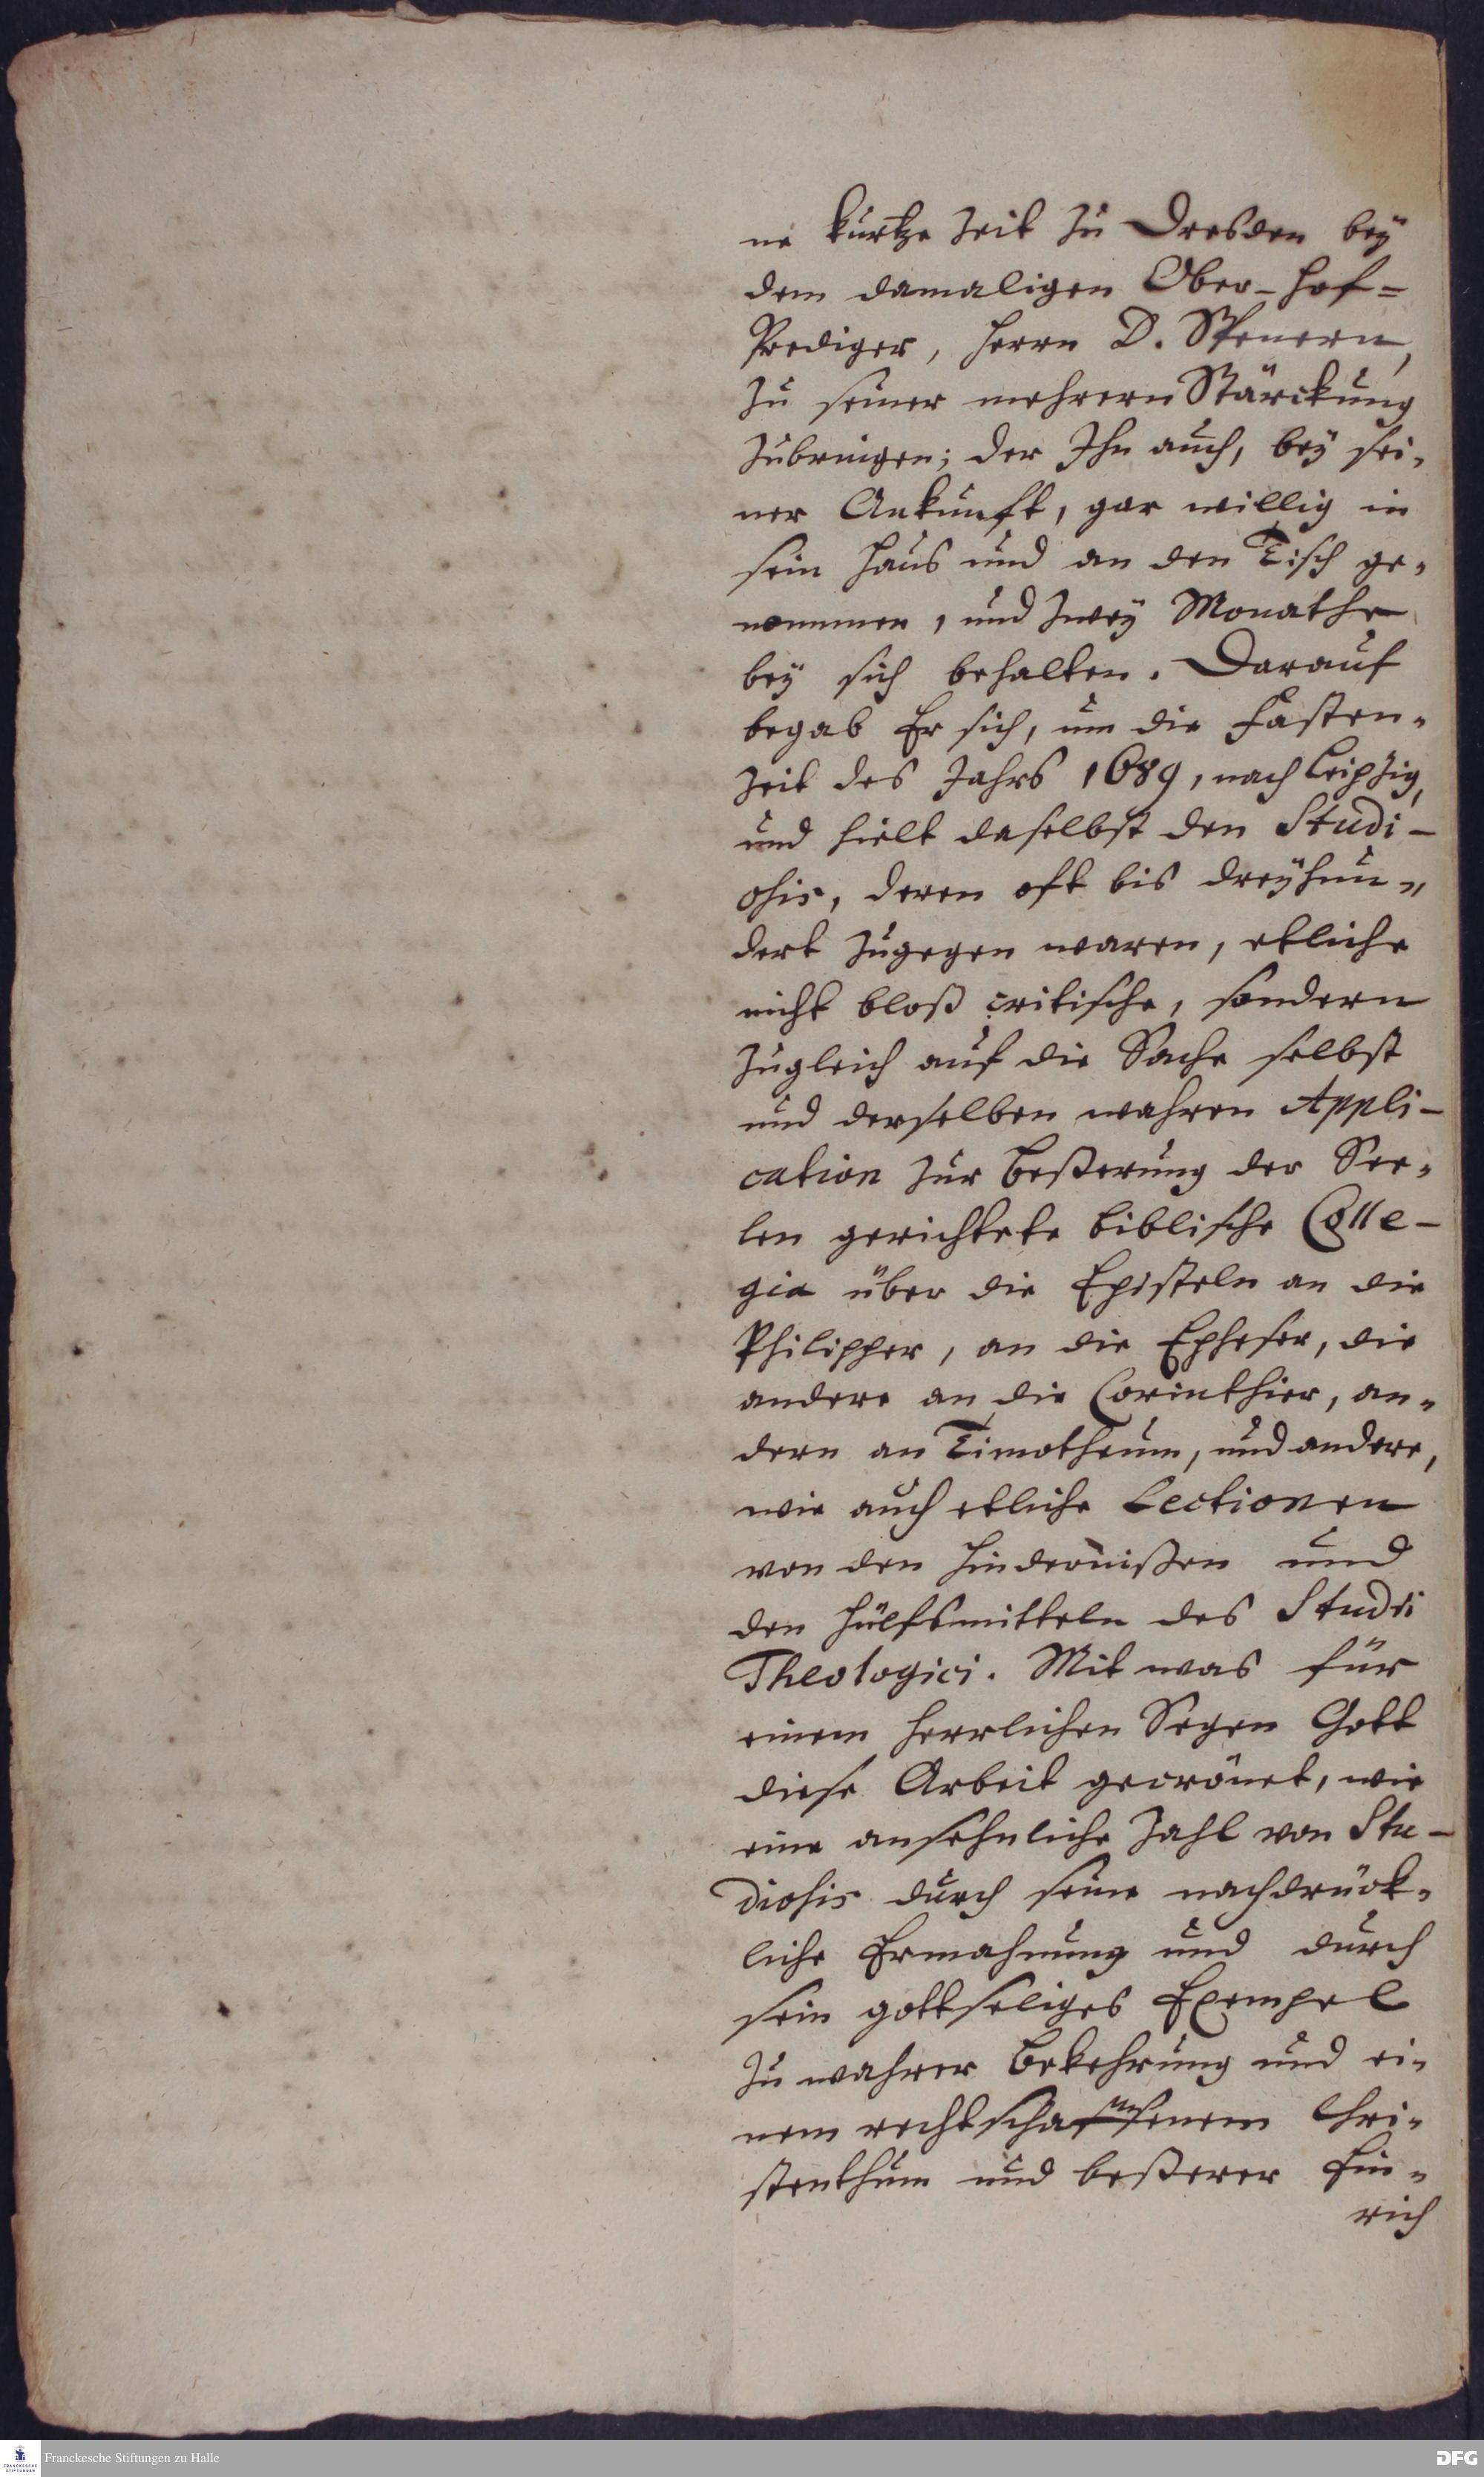 ne kurtze Zeit zu Dresden bey
dem damaligen Ober-Hof=
Prediger, Herrn D. Spenern,
zu seiner mehrern Stärckung
zubringen; der Ihn auch, bey sei=
ner Ankunft, gar willig in
sein Haus und an den Tisch ge=
nommen, und zwey Monathe
bey sich behalten. Darauf
begab Er sich, um die Fasten=
Zeit des Jahrs 1689, nach Leipzig,
und hielt daselbst den Studi-
osis, deren oft bis dreyhun=
dert zugegen waren, etliche
nicht bloß critische, sondern
zugleich auf die Sache selbst
und derselben wahren Appli-
cation zur Beßerung der See=
len gerichtete biblische Colle-
gia über die Episteln an die
Philipper, an die Epheser, die
andere an die Corinthier, an=
dern an Timotheum, und andere,
wie auch etliche Lectionen
von den Hindernißen und
den Hülfsmitteln des Studii
Theologici. Mit was für
einem herrlichen Segen Gott
diese Arbeit gecrönet, wie
eine ansehnliche Zahl von Stu-
diosis durch seine nachdrück=
liche Ermahnung und durch
sein gottseliges Exempel
zu wahrer Bekehrung und ei=
nem rechtschaffenem Chri=
stenthum und beßerer Ein=
rich
Franckesche Stiftungen zu Halle
FRANCKESCHE STIFTUNGEN
DFG